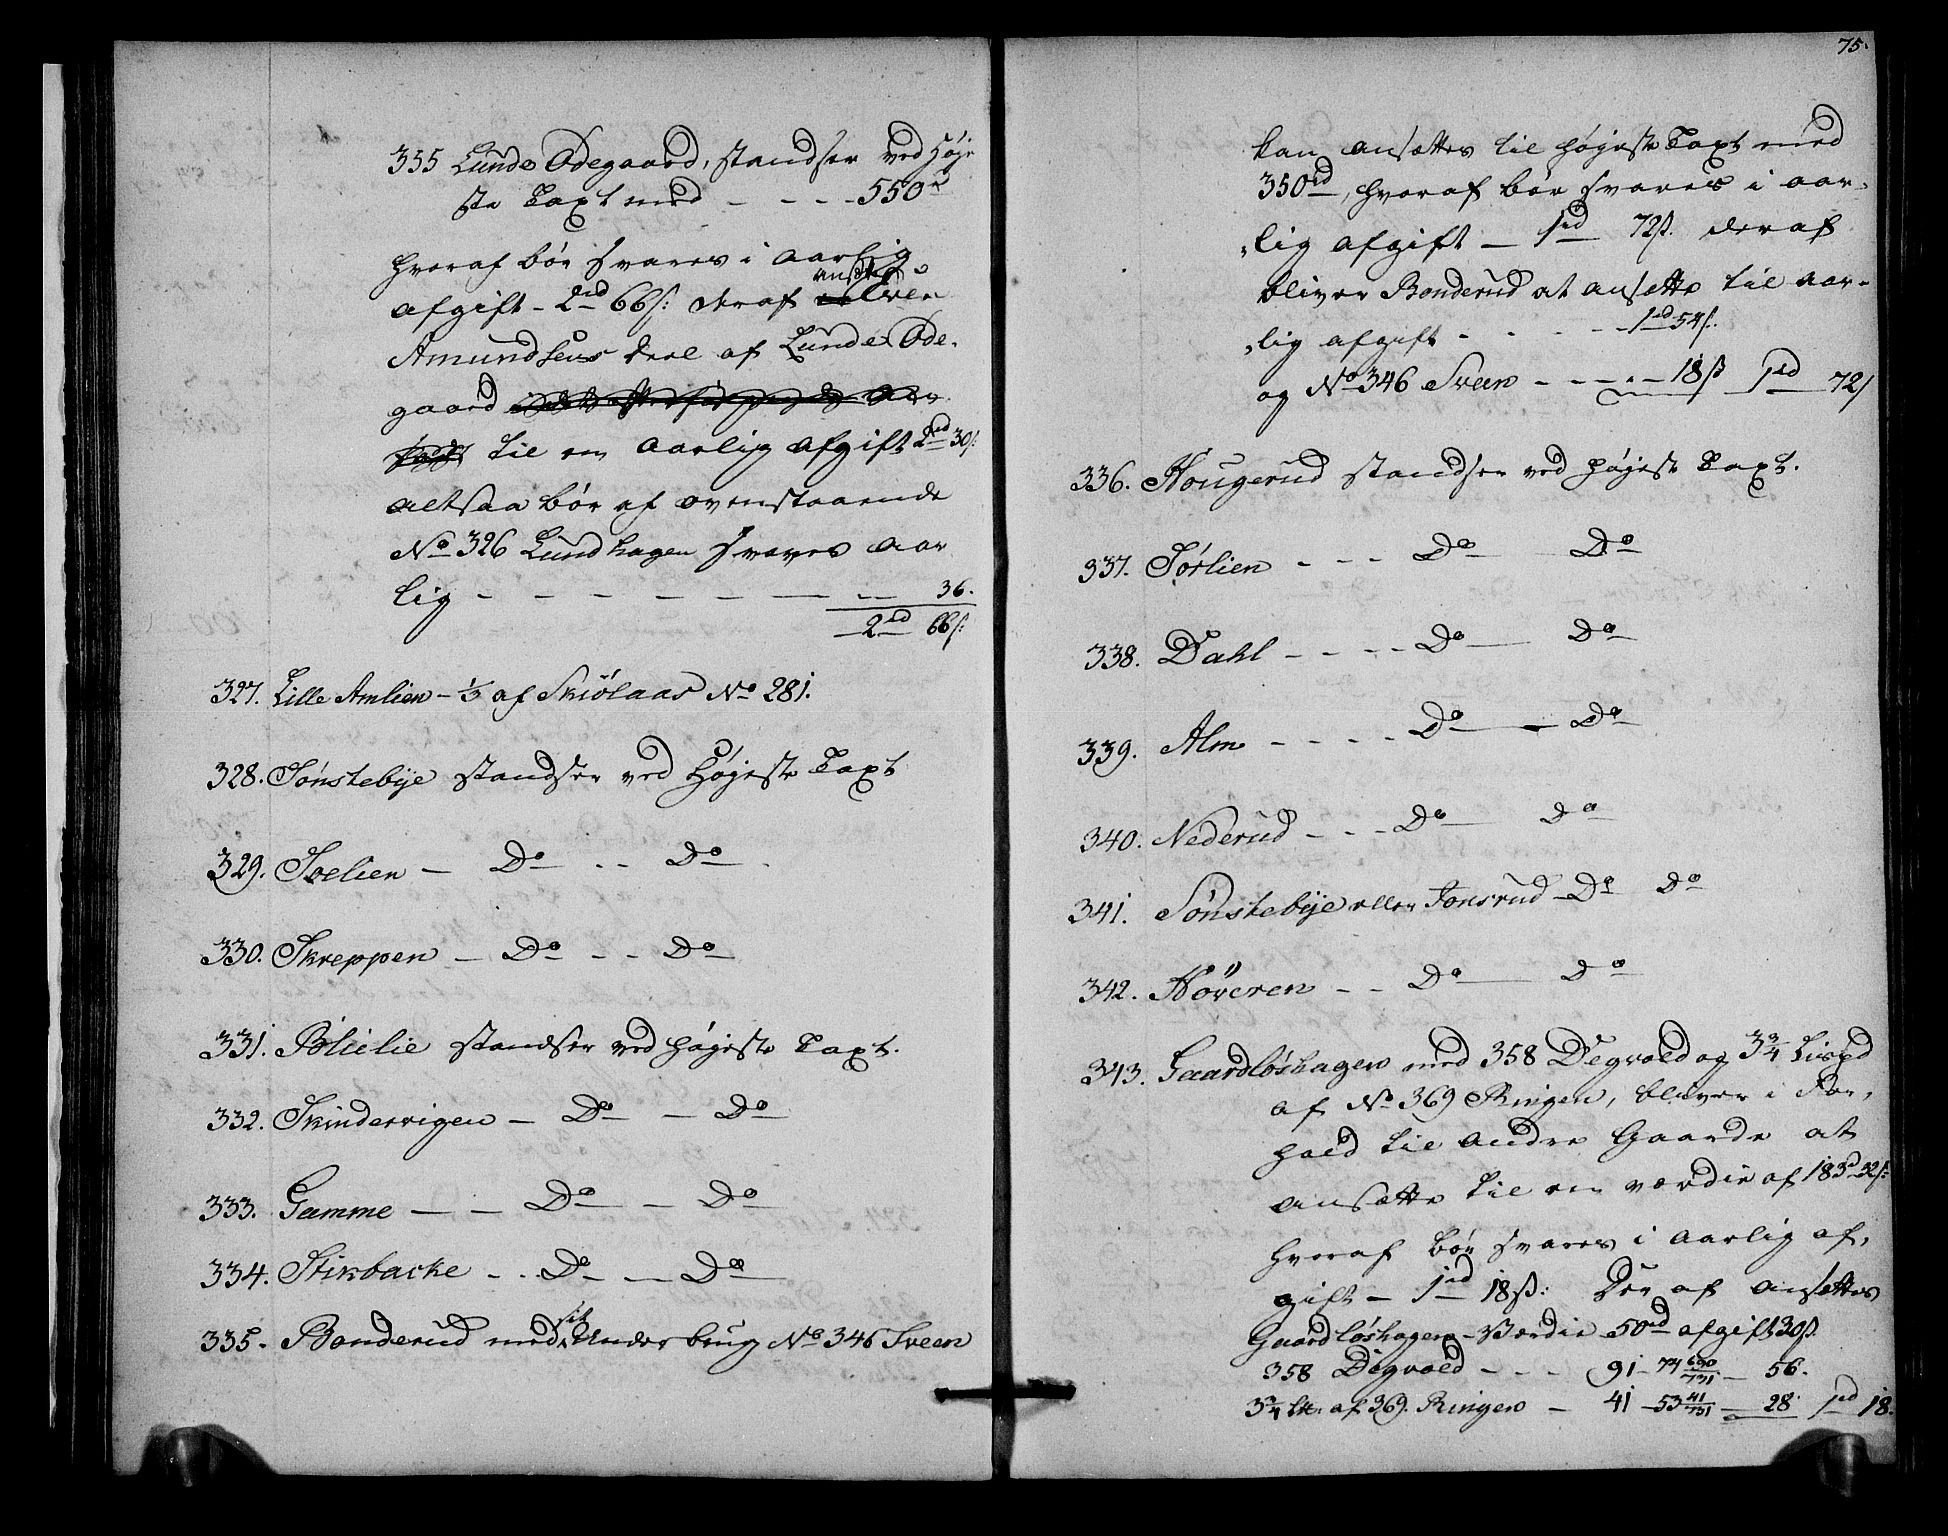 355 Lunde Ødegaard, standser ved Høje
ste Taxt med - - - - 550rd
hvoraf bør svares i aarlig
afgift - 2rd 66s: deraf ansættes Iver
Amundsens deel af Lunde Øde-
gaard
til en aarlig afgift 2rd 30s:
altsaa bør af ovenstaaende
No 326 Lundhagen svares aar
lig - - - - - - - 36.
2rd 66s:
327. Lille Amlien - 1/3 af Skiølaas No 281.
328. Sønstebye standser ved Højeste Taxt
329. Soelien - Do - - Do
330. Skreppen - Do - - Do
331. Blielie standser ved højeste Taxt.
332. Skindervigen - Do - Do
333. Gamme - - Do - Do
334. Stikbacke - - Do - - Do
335. Bonderud med sit Underbrug No 346 Sveen
75.
kan ansættes til højeste Taxt med
350rd, hvoraf bør svares i aar-
lig afgift - 1rd 72s. deraf
bliver Bonderud at ansette til aar-
lig afgift - - - - - 1rd 54s.
og No 346 Sveen - - - - - 18s 1rd 72s
336. Hougerud standser ved højeste Taxt.
337. Sørlien - - - Do Do
338. Dahl - - - - Do Do
339. Alm - - - - Do - Do
340. Nederud - - - Do Do
341. Sønstebye eller Jonsrud - Do Do
342. Høveren - - Do Do
343. Gaardløshagen med 358 Degvold og 3 3/4 Lispd
af No 369 Ringen, bliver i For,
hold til andre Gaarde at
ansætte til en værdie af 183rd 32s:
hvoraf bør svares i aarlig af,
gift - 1rd 18s: Der af ansættes
Gaardløshagen - Værdie 50rd afgift 30s.
358 Degvold - - - 91 - 74 690/731 - 56.
3 3/4 Lt: af 369. Ringen - 41 - 53 41/731 - 28 1rd 18.